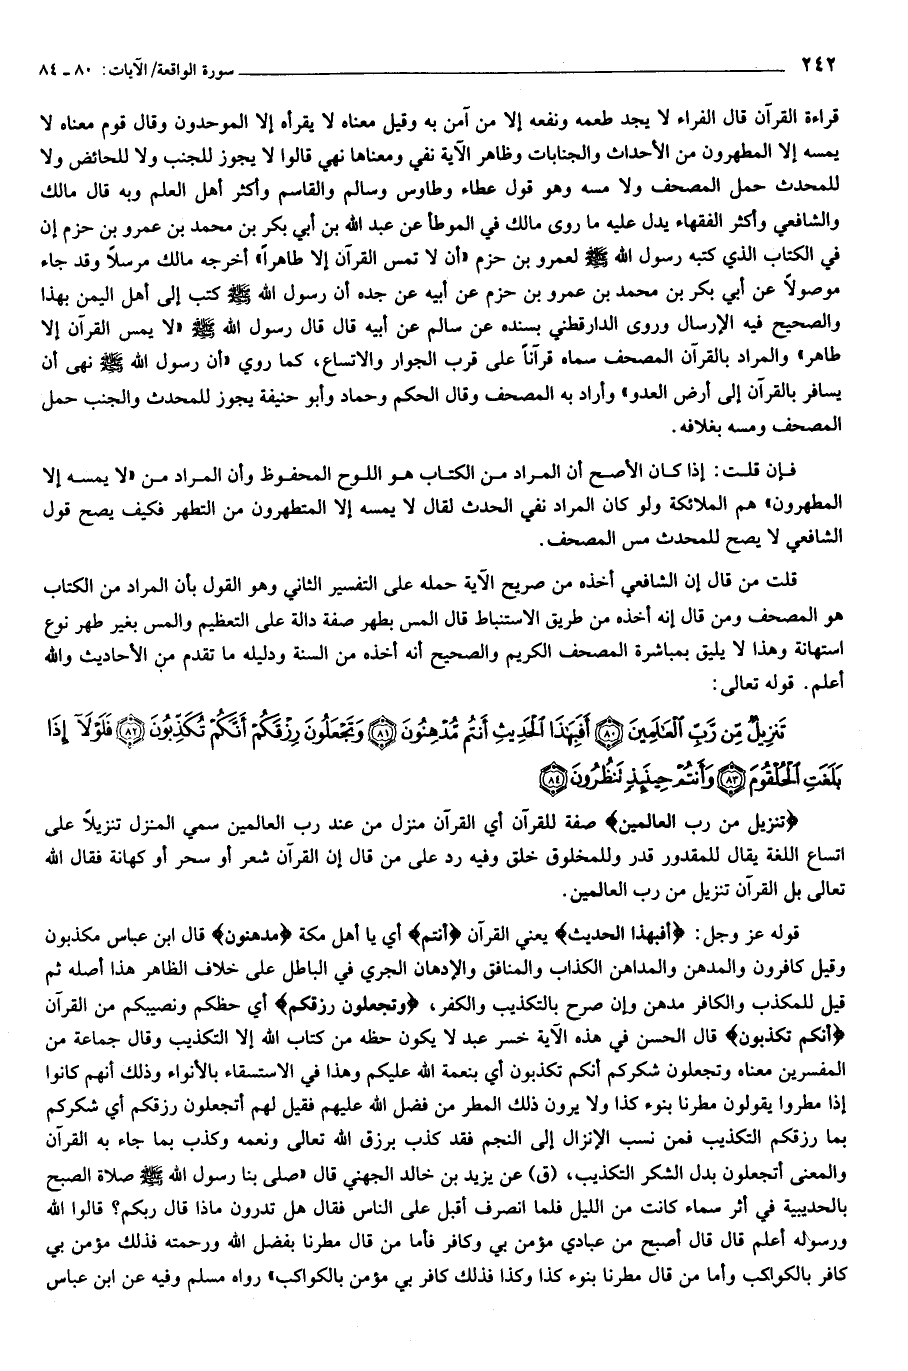 ٢٤٢ سورة الواقعة/ الآيات: ٨٠ ـ ٨٤
قراءة القرآن قال الفراء لا يجد طعمه ونفعه إلا من آمن به وقيل معناه لا يقرأه إلا الموحدون وقال قوم معناه لا
يمسه إلا المطهرون من الأحداث والجنابات وظاهر الآية نفي ومعناها نهي قالوا لا يجوز للجنب ولا للحائض ولا
للمحدث حمل المصحف ولا مسه وهو قول عطاء وطاوس وسالم والقاسم وأكثر أهل العلم وبه قال مالك
والشافعي وأكثر الفقهاء يدل عليه ما روى مالك في الموطأ عن عبد الله بن أبي بكر بن محمد بن عمرو بن حزم إن
في الكتاب الذي كتبه رسول الله ﷺ لعمرو بن حزم «أن لا تمس القرآن إلا طاهراً» أخرجه مالك مرسلاً وقد جاء
موصولاً عن أبي بكر بن محمد بن عمرو بن حزم عن أبيه عن جده أن رسول الله ﷺ كتب إلى أهل اليمن بهذا
والصحيح فيه الإرسال وروى الدارقطني بسنده عن سالم عن أبيه قال قال رسول الله ﷺ «لا يمس القرآن إلا
طاهر» والمراد بالقرآن المصحف سماه قرآناً على قرب الجوار والاتساع، كما روي «أن رسول الله ﷺ نهى أن
يسافر بالقرآن إلى أرض العدو» وأراد به المصحف وقال الحكم وحماد وأبو حنيفة يجوز للمحدث والجنب حمل
المصحف ومسه بغلافه.
فإن قلت: إذا كان الأصح أن المراد من الكتاب هو اللوح المحفوظ وأن المراد من «لا يمسه إلا
المطهرون» هم الملائكة ولو كان المراد نفي الحدث لقال لا يمسه إلا المتطهرون من التطهر فكيف يصح قول
الشافعي لا يصح للمحدث مس المصحف.
قلت من قال إن الشافعي أخذه من صريح الآية حمله على التفسير الثاني وهو القول بأن المراد من الكتاب
هو المصحف ومن قال إنه أخذه من طريق الاستنباط قال المس بطهر صفة دالة على التعظيم والمس بغير طهر نوع
استهانة وهذا لا يليق بمباشرة المصحف الكريم والصحيح أنه أخذه من السنة ودليله ما تقدم من الأحاديث والله
أعلم. قوله تعالى:
تَنزِيلٌ مِّن رَّبِّ ٱلْعَٰلَمِينَ ﴿٨٠﴾ أَفَبِهَٰذَا ٱلْحَدِيثِ أَنتُم مُّدْهِنُونَ ﴿٨١﴾ وَتَجْعَلُونَ رِزْقَكُمْ أَنَّكُمْ تُكَذِّبُونَ ﴿٨٢﴾ فَلَوْلَآ إِذَا
بَلَغَتِ ٱلْحُلْقُومَ ﴿٨٣﴾ وَأَنتُمْ حِينَئِذٍ تَنظُرُونَ ﴿٨٤﴾
﴿تنزيل من رب العالمين﴾ صفة للقرآن أي القرآن منزل من عند رب العالمين سمي المنزل تنزيلاً على
اتساع اللغة يقال للمقدور قدر وللمخلوق خلق وفيه رد على من قال إن القرآن شعر أو سحر أو كهانة فقال الله
تعالى بل القرآن تنزيل من رب العالمين.
قوله عز وجل: ﴿أفبهذا الحديث﴾ يعني القرآن ﴿أنتم﴾ أي يا أهل مكة ﴿مدهنون﴾ قال ابن عباس مكذبون
وقيل كافرون والمدهن والمداهن الكذاب والمنافق والإدهان الجري في الباطل على خلاف الظاهر هذا أصله ثم
قيل للمكذب والكافر مدهن وإن صرح بالتكذيب والكفر، ﴿وتجعلون رزقكم﴾ أي حظكم ونصيبكم من القرآن
﴿أنكم تكذبون﴾ قال الحسن في هذه الآية خسر عبد لا يكون حظه من كتاب الله إلا التكذيب وقال جماعة من
المفسرين معناه وتجعلون شكركم أنكم تكذبون أي بنعمة الله عليكم وهذا في الاستسقاء بالأنواء وذلك أنهم كانوا
إذا مطروا يقولون مطرنا بنوء كذا ولا يرون ذلك المطر من فضل الله عليهم فقيل لهم أتجعلون رزقكم أي شكركم
بما رزقكم التكذيب فمن نسب الإنزال إلى النجم فقد كذب برزق الله تعالى ونعمه وكذب بما جاء به القرآن
والمعنى أتجعلون بدل الشكر التكذيب، (ق) عن يزيد بن خالد الجهني قال «صلى بنا رسول الله ﷺ صلاة الصبح
بالحديبية في أثر سماء كانت من الليل فلما انصرف أقبل على الناس فقال هل تدرون ماذا قال ربكم؟ قالوا الله
ورسوله أعلم قال قال أصبح من عبادي مؤمن بي وكافر فأما من قال مطرنا بفضل الله ورحمته فذلك مؤمن بي
كافر بالكواكب وأما من قال مطرنا بنوء كذا وكذا فذلك كافر بي مؤمن بالكواكب» رواه مسلم وفيه عن ابن عباس